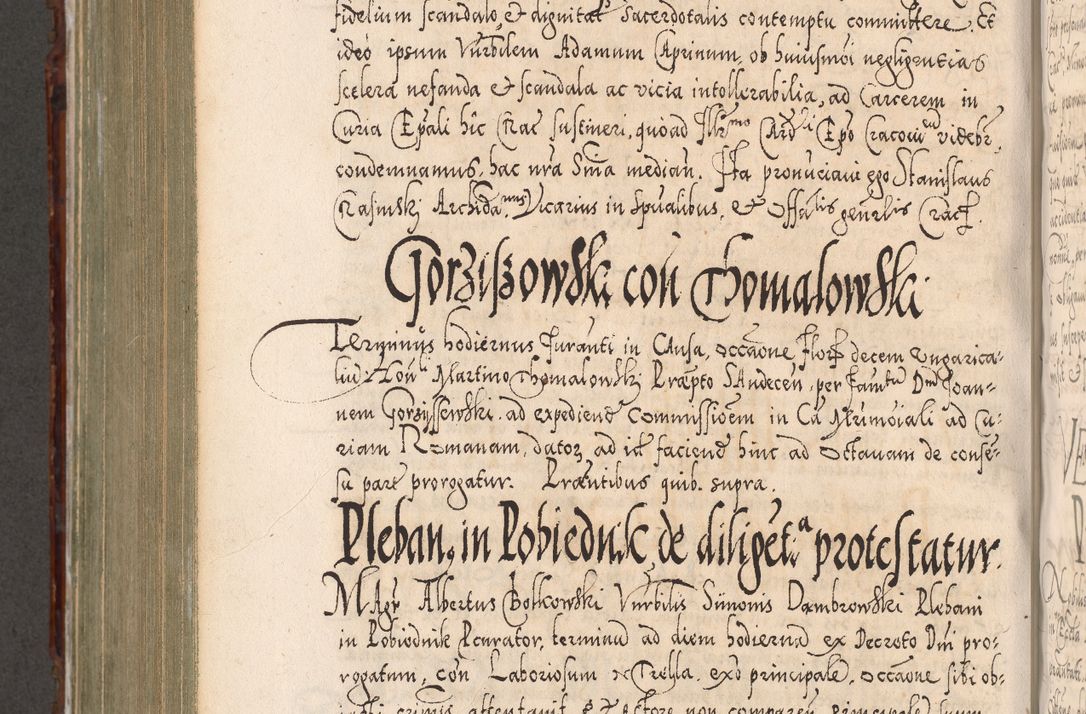 fidelium scandalo, et dignitat Sacerdotalis contemptu committere. Et
ideo ipsum Vnrbilem Adamum Caprinum, ob huiusmoi negligentias
scelera nefanda et scandala ac vicia intollerabilia, ad Carcerem in
Curia Epali hic Crac sustineri, quoad Illrmo Cardli Epo Cracovien videbr
condemnamus, hac nra Sma median. Ita pronuciavi ego Stanislaus
Crasinski Archidanus, Vicarius in Spualibus, et Offalis genrlis Crac.
Gorziszowski con Thomalowski
Terminus hodiernus Juranti in Causa, occaone Flor decem Ungarica-
liu Hon Martino Thomalowski Praepto SAndecen, per Dnu Joan-
nem Gorzyssewski, ad expediend commissioem in Ca Mrimoiali ad Cu-
riam Romanam, dator, ad id faciend hinc ad Octavam de conse-
su part prorogatur. Praesntibus quib. supra.
Pleban, in Pobiednik de diligeta protestatur.
MAgr Albertus Bolkowski Vnrbilis Simonis Dambrowski Plebani
in Pobiednik Pcurator, terminu ad diem hodiernu ex Decreto Dni pro-
rogatum, con Laboriosum Trella, principale, occaone sibi ob-
criminis attentavit, et Actore non comparen principale suum